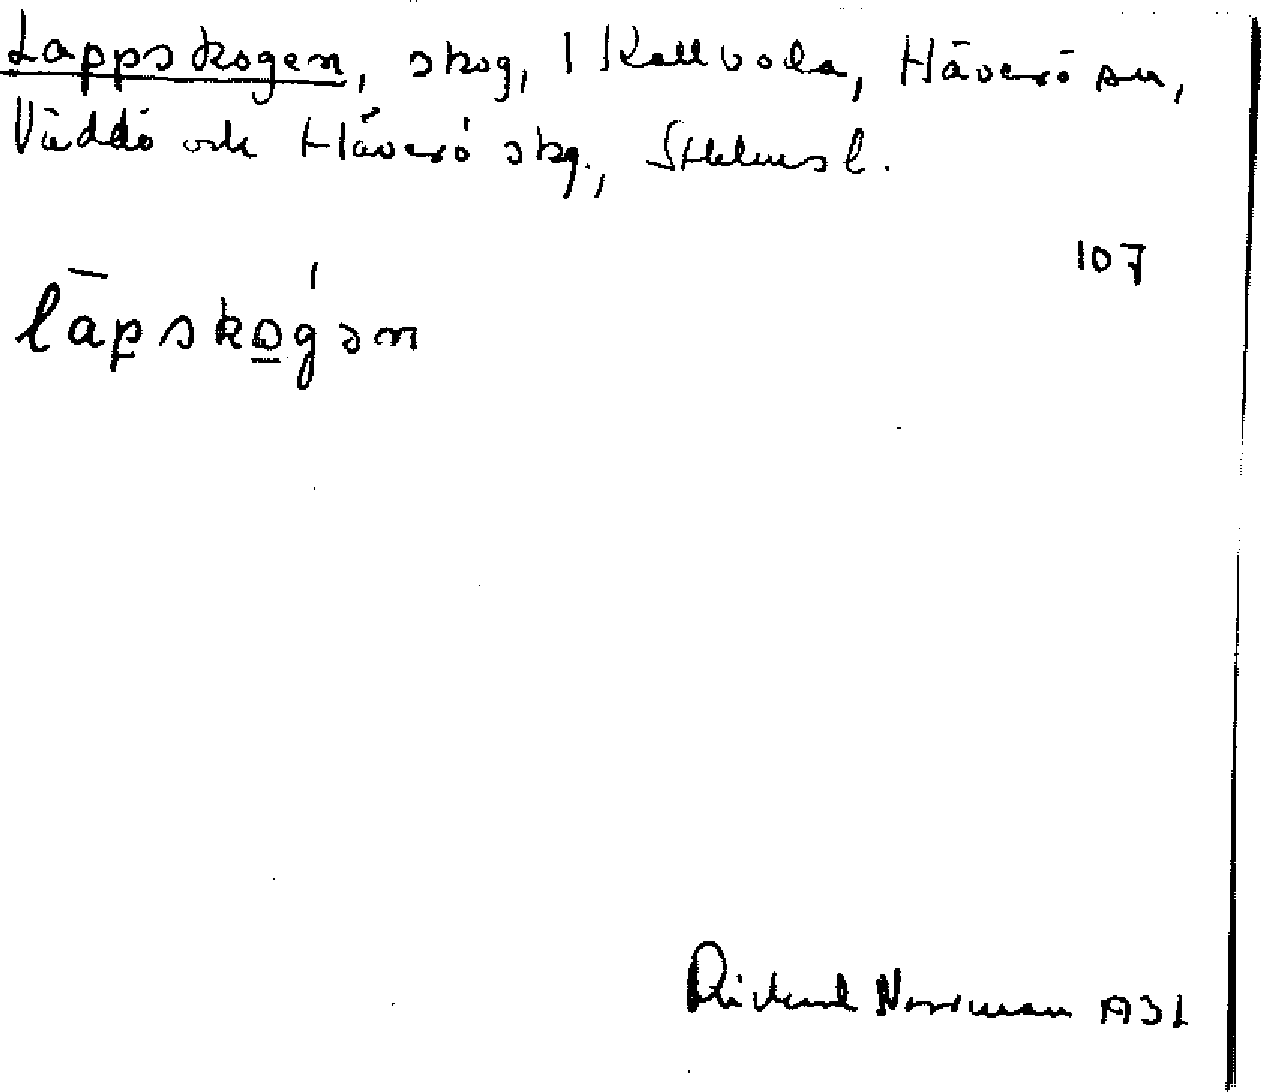 Lappskogen, skog, 1 Kallboda, Häverö sn,
Väddö och Häverö skg., Sthlms l.
107
lāpskog̍ən
Rickard Norrman 1932